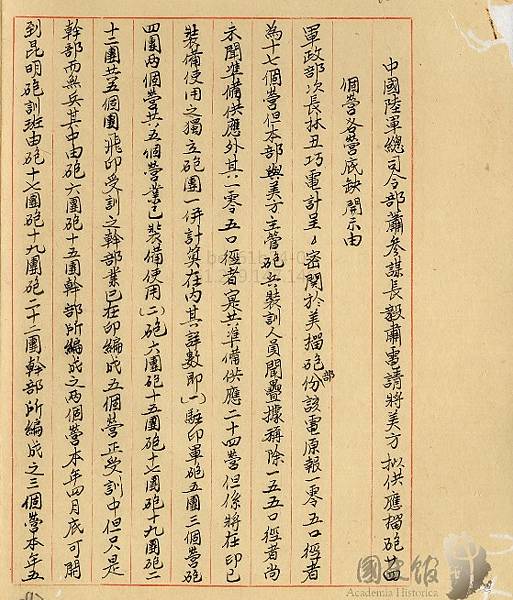 中國陸軍總司令部蕭參謀長毅肅電請將美方拟供應榴砲
個營各營底缺開示由
軍政部次長林丑巧電計呈密關於美榴砲部份該電原報一零五口徑者
為十七個營但本部與美方主管砲兵裝訓人員聞疊據稱除一五五口徑者尚
未聞準備供應外其一零五口徑者累共準備供應二十四營但係將在印已
裝備使用之獨立砲團一併計算在內其詳數即(一)駐印軍砲五團三個營砲
四團兩個營共五個營業已裝備使用(二)砲六團砲十五團砲十七團砲十九團砲二
十二團共五個團飛印受訓之幹部業已在印編成五個營正受訓中但只是
幹部而無兵其中由砲六團砲十五團幹部所編成之兩個營本年四月底可開
到昆明砲訓班由砲十七團砲十九團砲二十二團幹部所編成之三個營本年五
國史館
Academia Historica